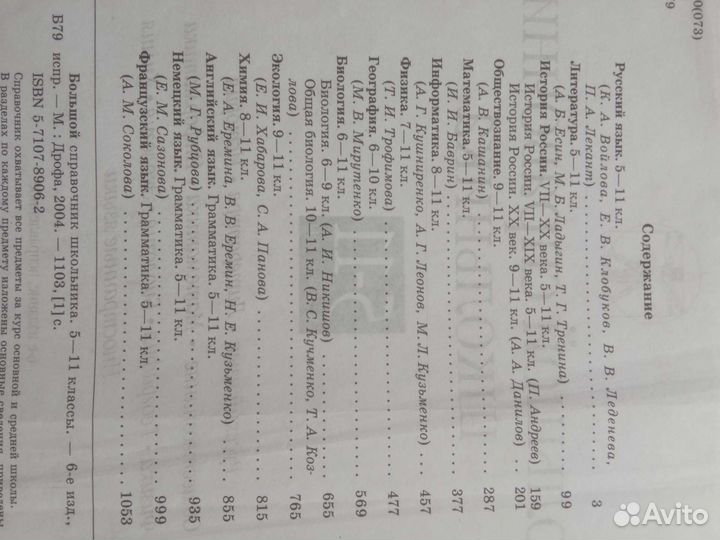 0(073)
9
Содержание
Русский язык. 5—11 кл.
(К. А. Войлова, Е. В. Клобуков, В. В. Леденева,
П. А. Лекант) . . . . . . . . . . . . . . . . . . . . 3
Литература. 5—11 кл.
(А. Б. Есин, М. Б. Ладыгин, Т. Г. Тренина) . . . 99
История России. VII—XX века. 5—11 кл.
История России. VII—XIX века. 5—11 кл. (П. Андреев) 159
История России. XX век. 9—11 кл. (А. А. Данилов) . . 201
Обществознание. 9—11 кл.
(А. В. Кашанин) . . . . . . . . . . . . . . . . . . 287
Математика. 5—11 кл.
(И. И. Баврин) . . . . . . . . . . . . . . . . . . 377
Информатика. 8—11 кл.
(А. Г. Кушниренко, А. Г. Леонов, М. Л. Кузьменко) . . 457
Физика. 7—11 кл.
(Т. И. Трофимова) . . . . . . . . . . . . . . . . . 477
География. 6—10 кл.
(М. В. Мирутенко) . . . . . . . . . . . . . . . . . 569
Биология. 6—11 кл.
Биология. 6—9 кл. (А. И. Никишов) . . . . . . . . 655
Общая биология. 10—11 кл. (В. С. Кучменко, Т. А. Коз-
лова) . . . . . . . . . . . . . . . . . . . . . . . 765
Экология. 9—11 кл.
(Е. И. Хабарова, С. А. Панова) . . . . . . . . . . 815
Химия. 8—11 кл.
(Е. А. Еремина, В. В. Еремин, Н. Е. Кузьменко) . . . 855
Английский язык. Грамматика. 5—11 кл.
(М. Г. Рубцова) . . . . . . . . . . . . . . . . . . 935
Немецкий язык. Грамматика. 5—11 кл.
(Е. М. Сазонова) . . . . . . . . . . . . . . . . . 999
Французский язык. Грамматика. 5—11 кл.
(А. М. Соколова) . . . . . . . . . . . . . . . . . 1053
Большой справочник школьника. 5—11 классы. — 6-е изд.,
Б79 испр. — М. : Дрофа, 2004. — 1103, [1] с.
ISBN 5-7107-8906-2
Справочник охватывает все предметы за курс основной и средней школы.
В разделах по каждому предмету изложены основные сведения, приведены
Avito